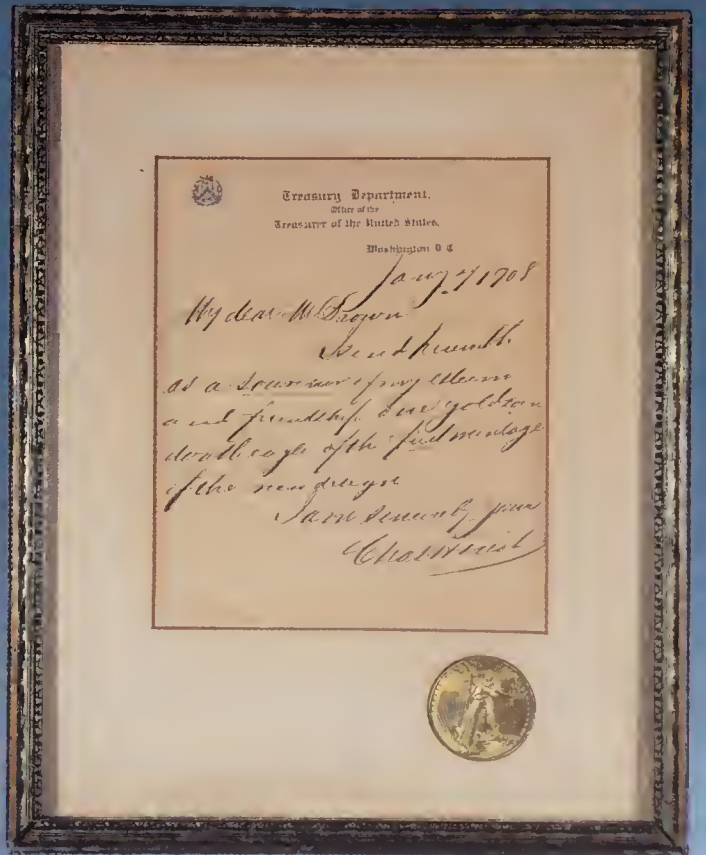 Treasury Department,
Office of the
Treasurer of the United States.
Washington D C
Jany 7 1908
My dear Mr Brown
I send herewith
as a souvenir of my esteem
and friendship one gold coin
double eagle of the first mintage
of the new design
I am sincerely yours
Chas H Treat